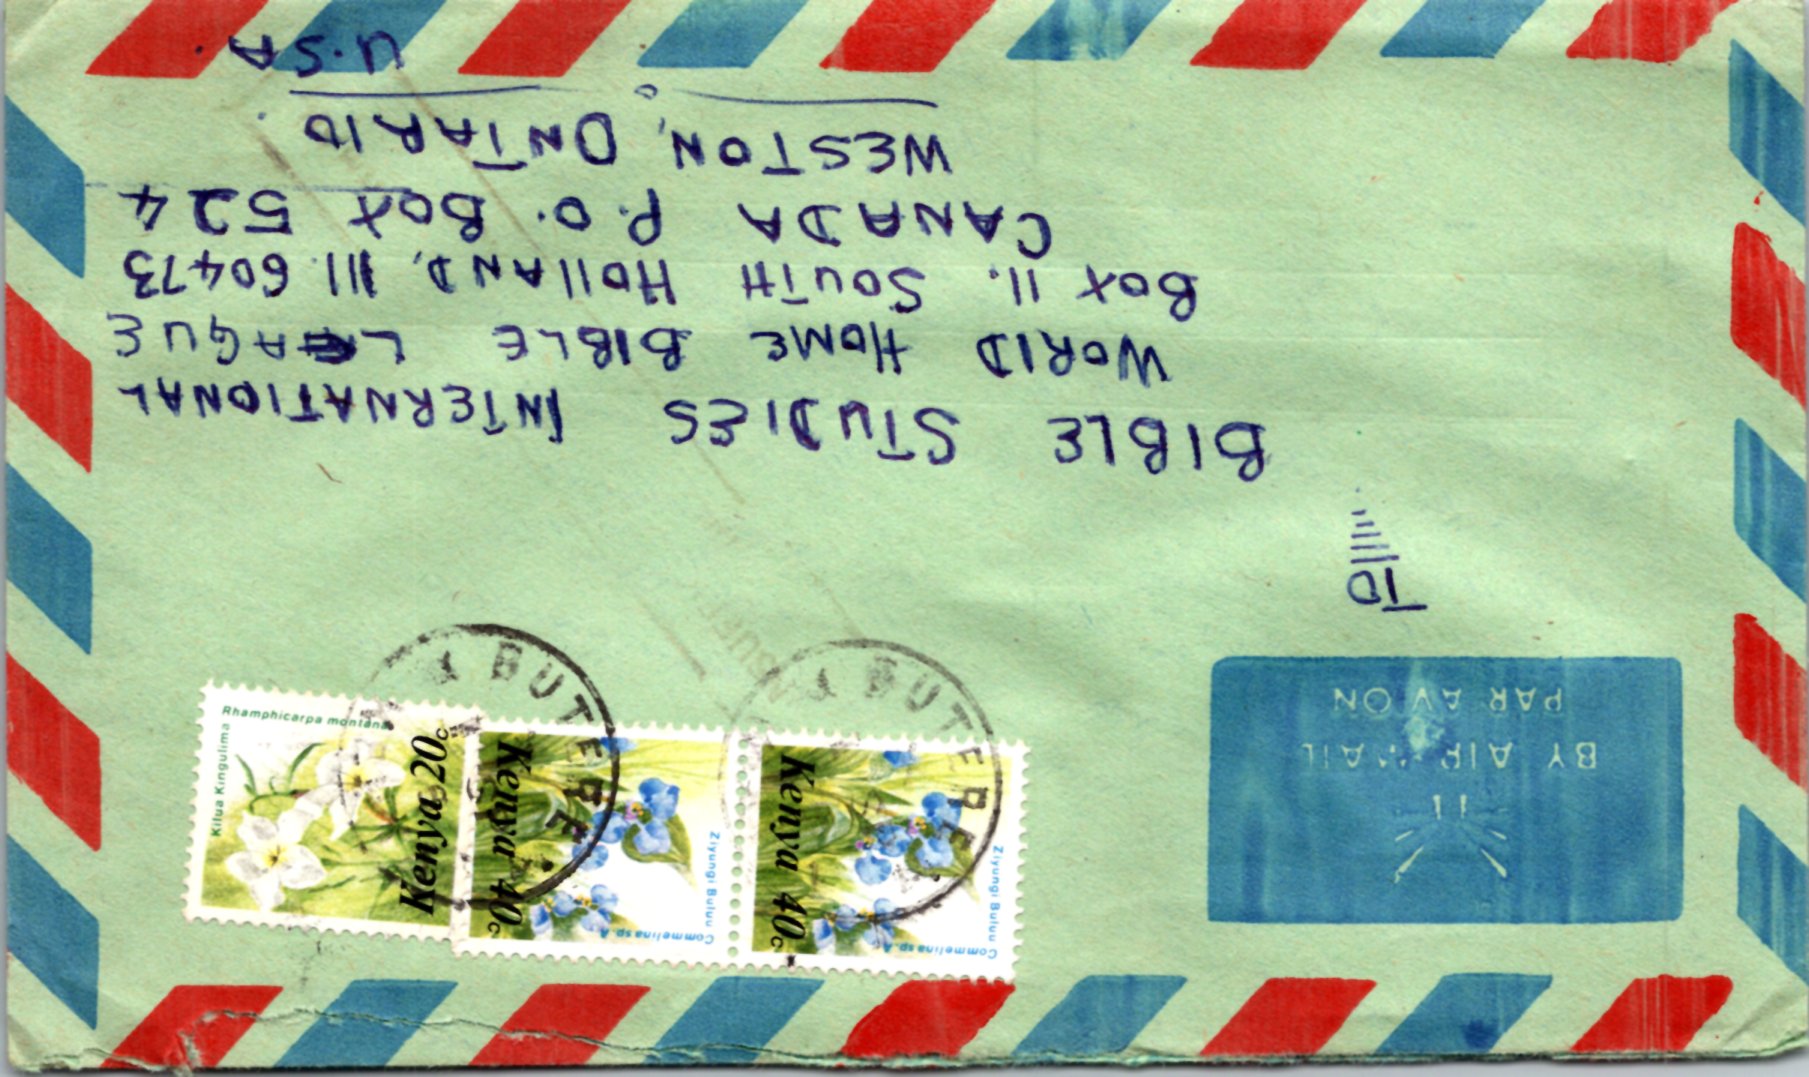 BY AIR MAIL
PAR AVON
TO
BIBLE STUDIES INTERNATIONAL
WORLD HOME BIBLE LEAGUE
BOX 11. SOUTH HOLLAND, Ill. 60473
CANADA P.O. BOX 524
WESTON, ONTARIO.
U.S.A.
Kenya 40c
Ziyungi Buluu Commelina sp. A
Kenya 40c
Ziyungi Buluu Commelina sp. A
Kenya 20c
Kitua Kingulima
Rhamphicarpa montana
BUTERE
BUTERE